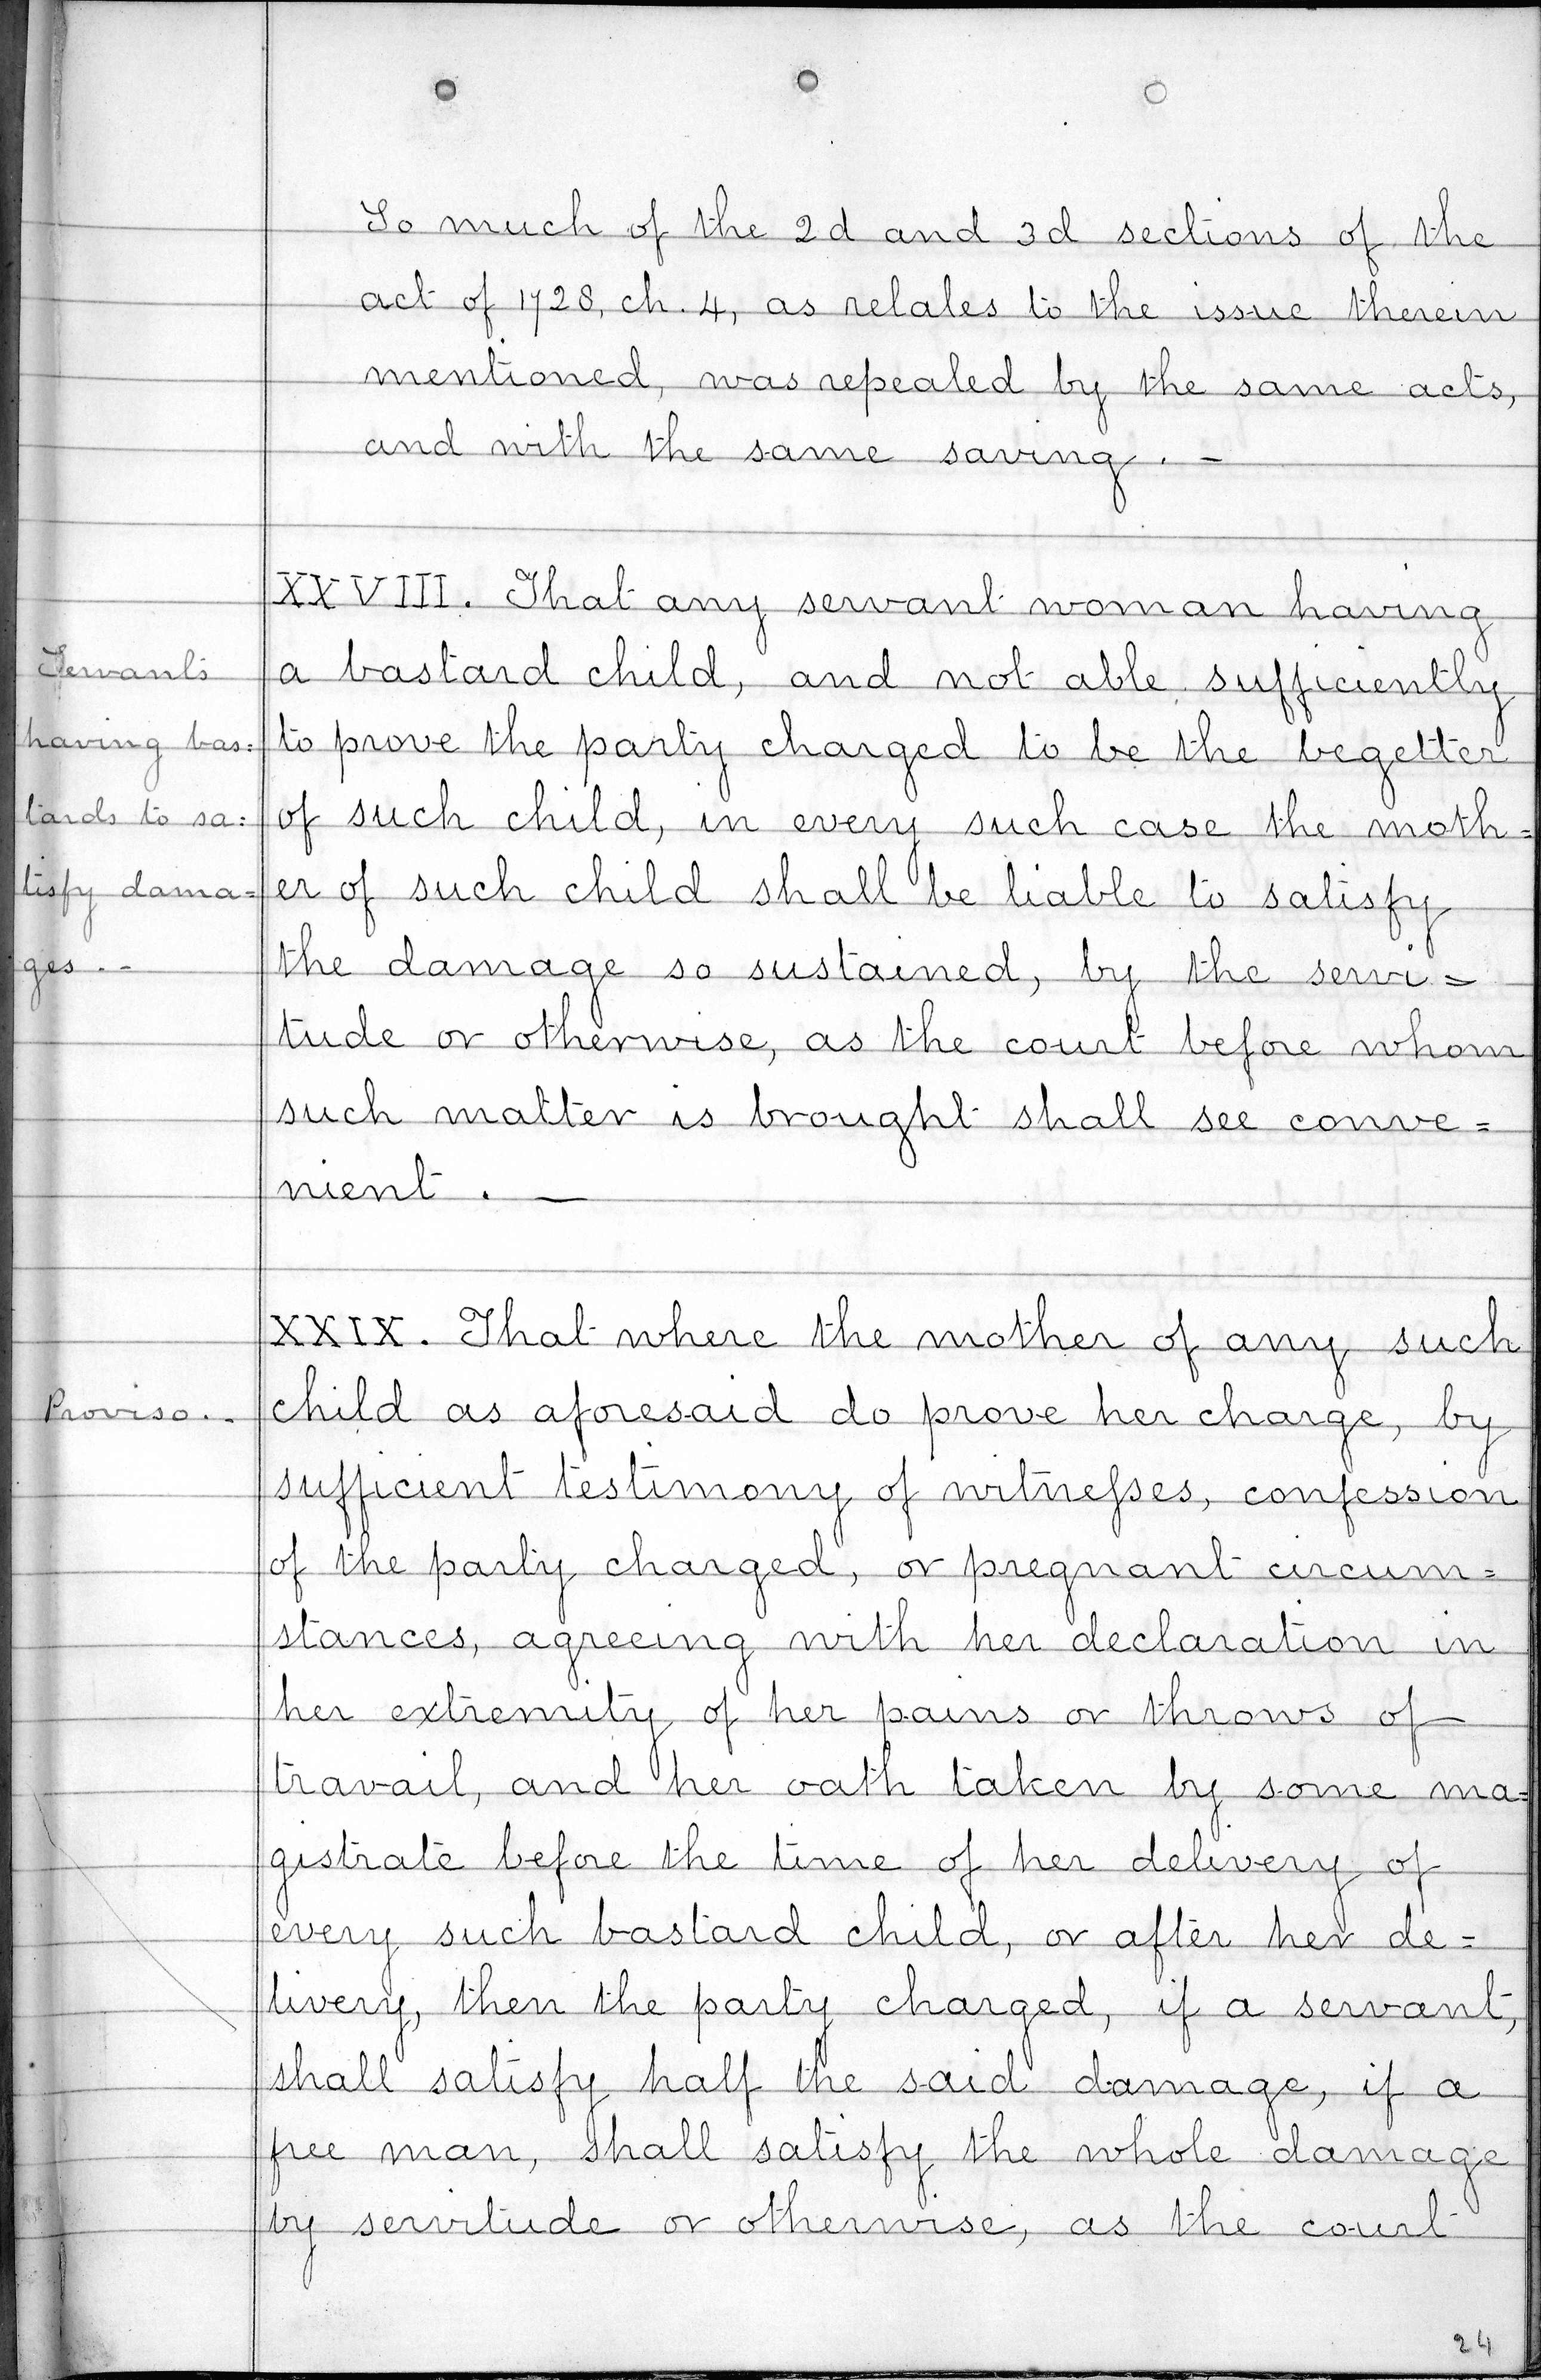 So much of the 2d and 3d sections of the
act of 1728, ch. 4, as relates to the issue therein
mentioned, was repealed by the same acts,
and with the same saving. -
XXVIII. That any servant woman having
a bastard child, and not able sufficiently
to prove the party charged to be the begetter
of such child, in every such case the moth=
er of such child shall be liable to satisfy
the damage so sustained, by the servi=
tude or otherwise, as the court before whom
such matter is brought shall see conve=
nient. —
Servants
having bas=
tards to sa=
tisfy dama=
ges. --
XXIX. That where the mother of any such
child as aforesaid do prove her charge, by
sufficient testimony of witneſses, confession
of the party charged, or pregnant circum=
stances, agreeing with her declaration in
her extremity of her pains or throws of
travail, and her oath taken by some ma=
gistrate before the time of her delivery of
every such bastard child, or after her de=
livery, then the party charged, if a servant,
shall satisfy half the said damage, if a
free man, shall satisfy the whole damage
by servitude or otherwise, as the court
Proviso. -
24